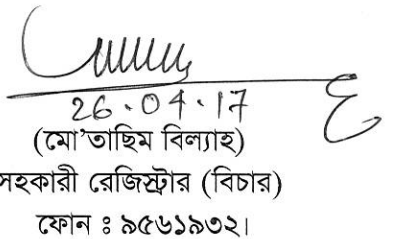 26.04.17
(মো'তাছিম বিল্যাহ)
সহকারী রেজিস্ট্রার (বিচার)
ফোন ঃ ৯৫৬১৯৩২।